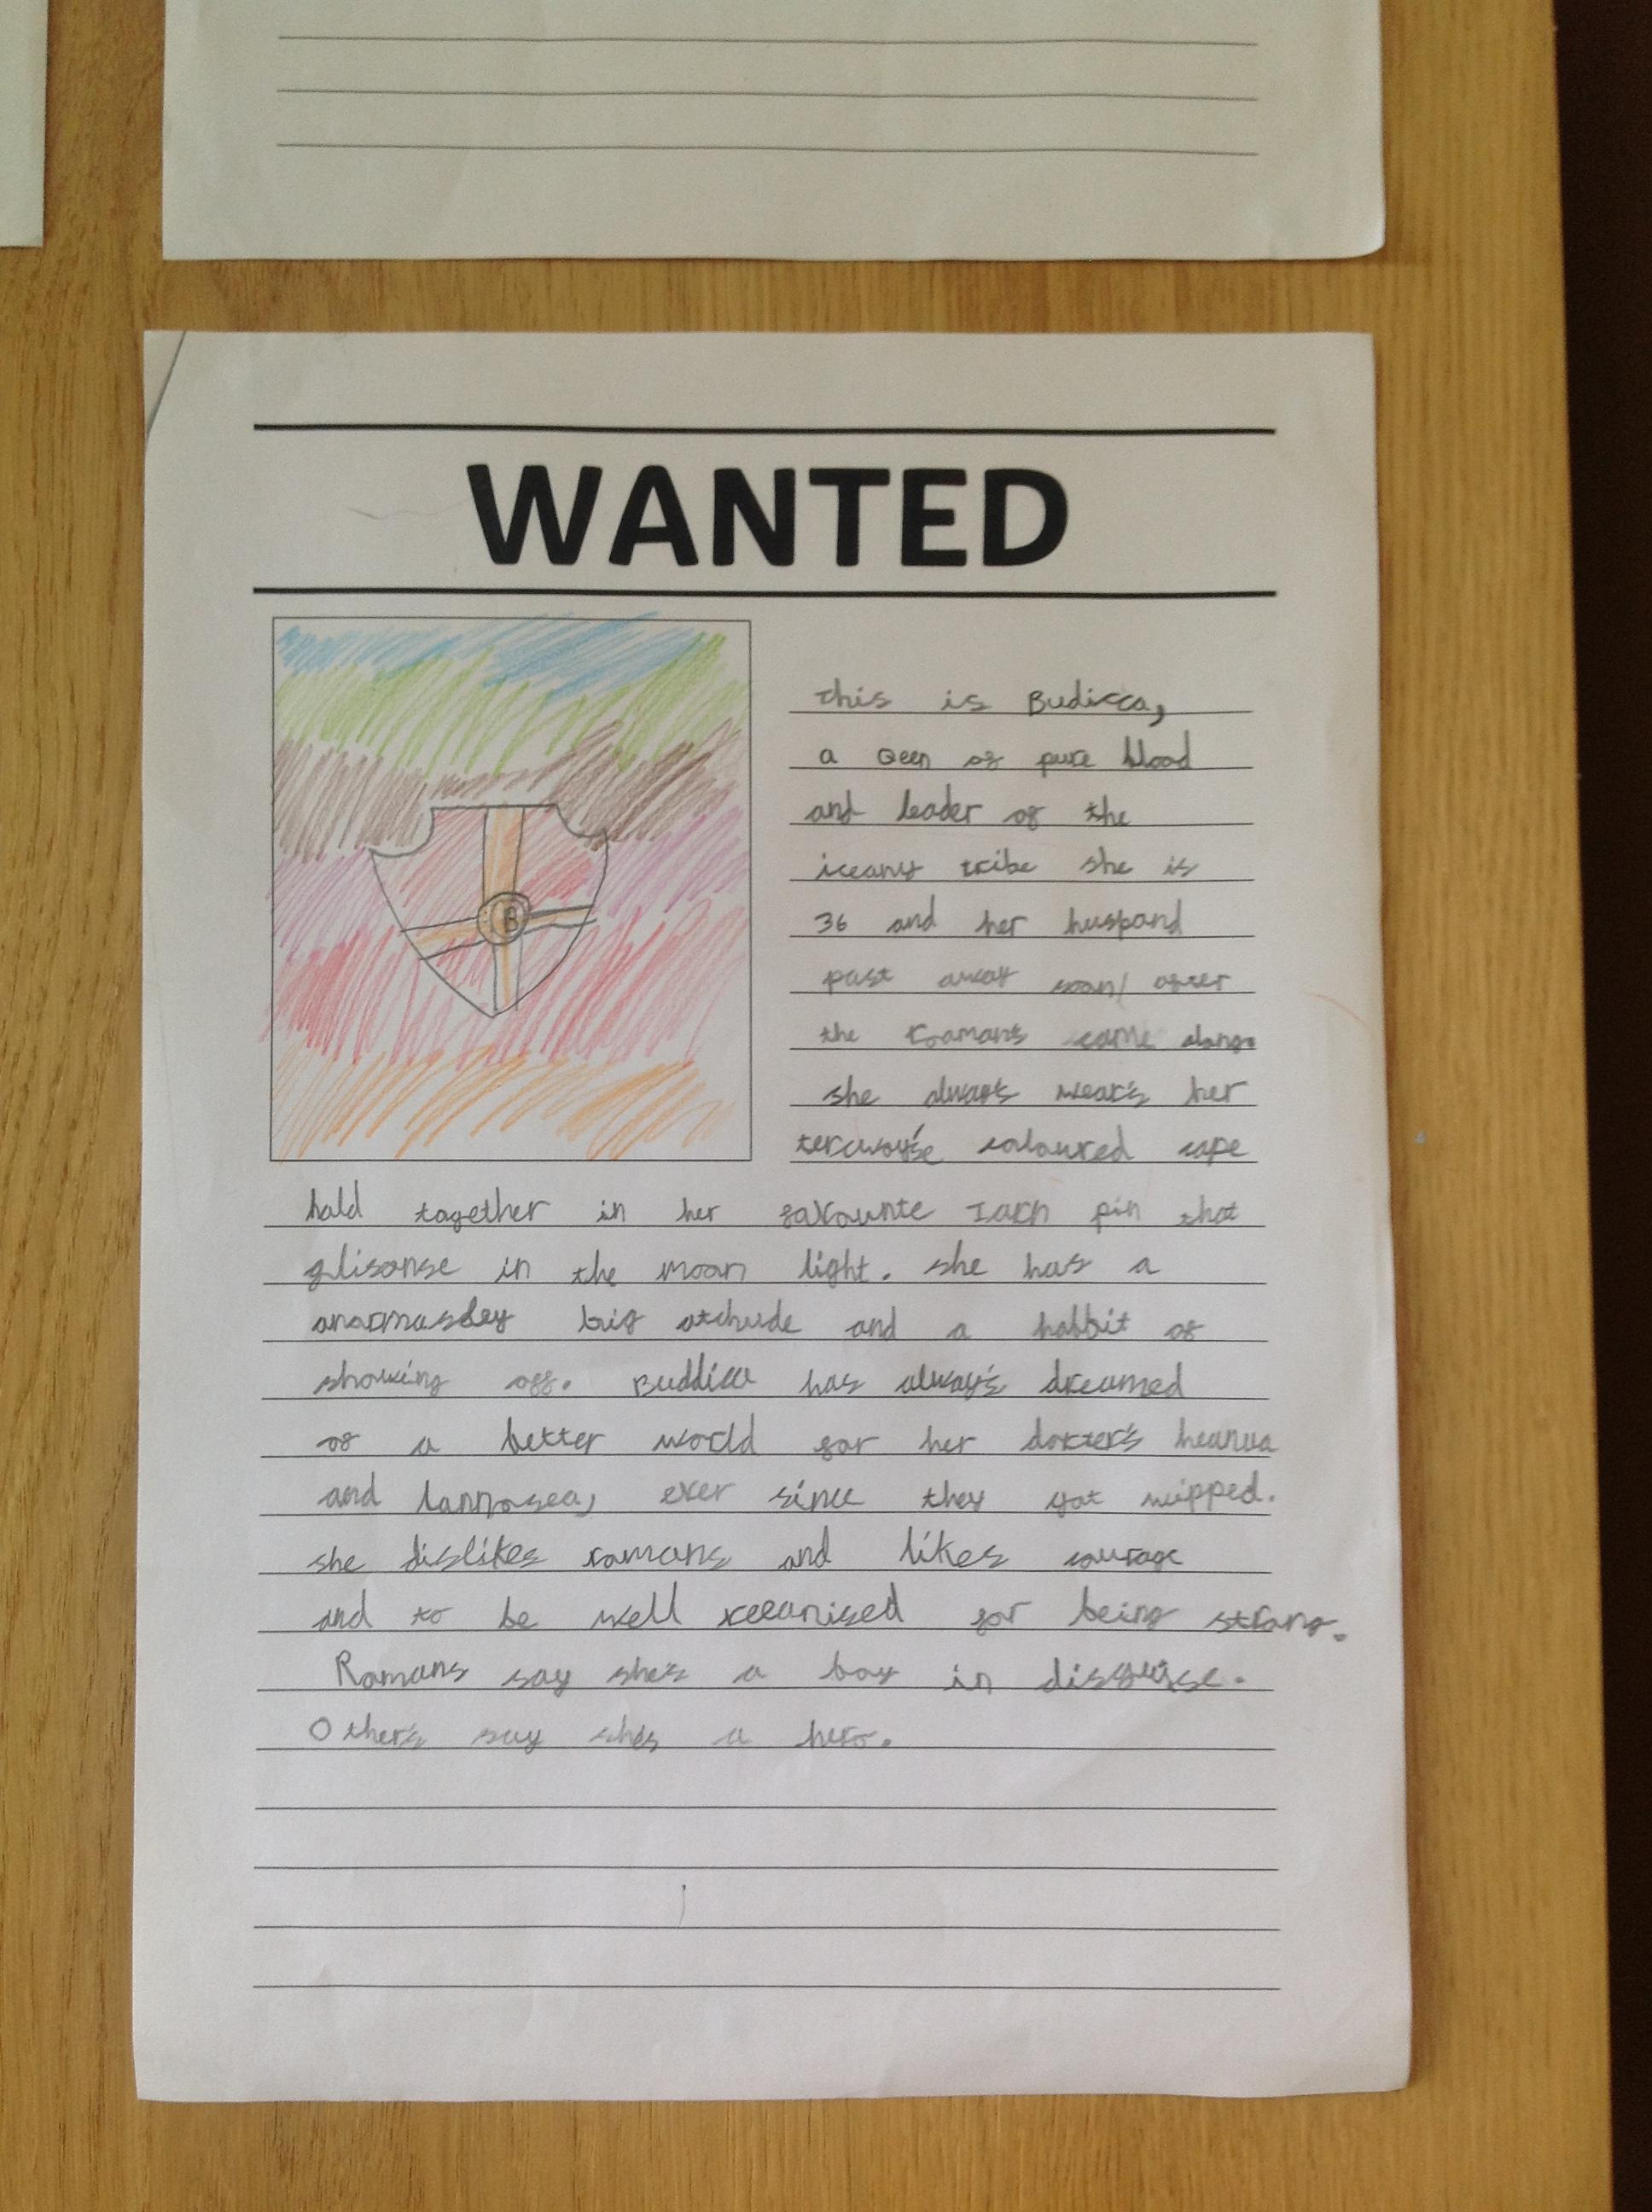 WANTED
B
this is Budicca,
a Qeen of pure blood
and leader of the
iceany tribe she is
36 and her huspand
past away soon/ after
the roamans came along.
she always wear's her
tercwoyse coloured cape
hold together in her favourite Iarn pin that
glisonse in the moon light. she has a
anormasley big atchude and a habbit of
showing off. Buddica has alway's dreamed
of a better world for her dorter's heanua
and lannosea, ever since they got wipped.
she dislikes romans and likes courage
and to be well reconised for being strong.
Romans say she's a boy in disguise.
Other's say shes a hero.